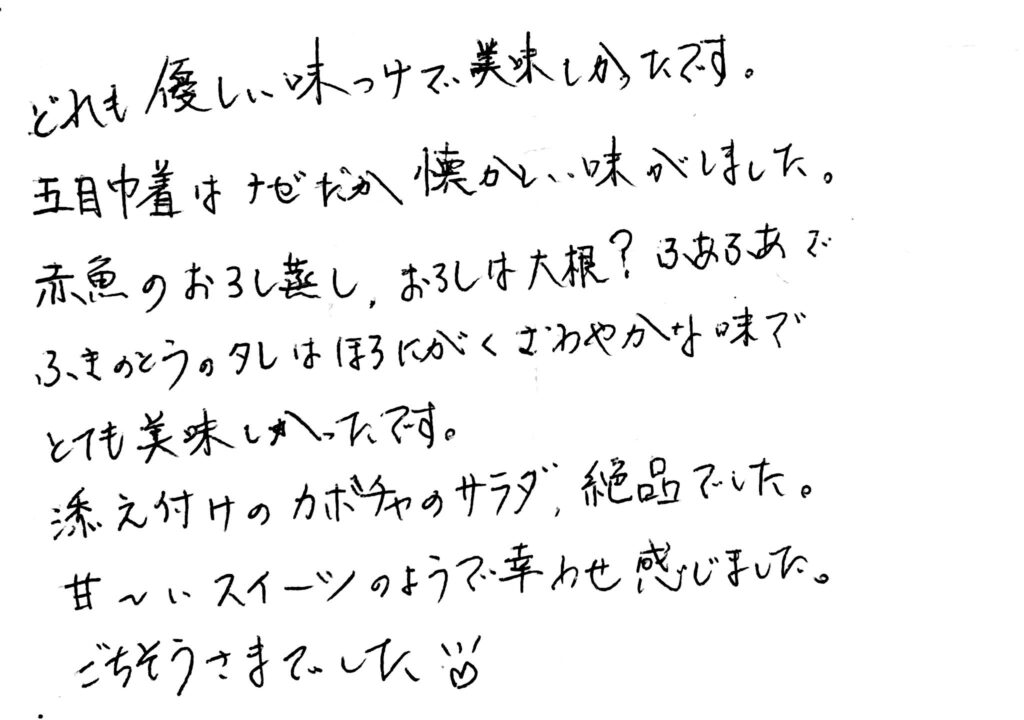 どれも優しい味つけで美味しかったです。
五目巾着はナゼだか懐かしい味がしました。
赤魚のおろし蒸し、おろしは大根?ふあふあで
ふきのとうのタレはほろにがくさわやかな味で
とても美味しかったです。
添え付けのカボチャのサラダ、絶品でした。
甘〜いスイーツのようで幸わせ感じました。
ごちそうさまでした